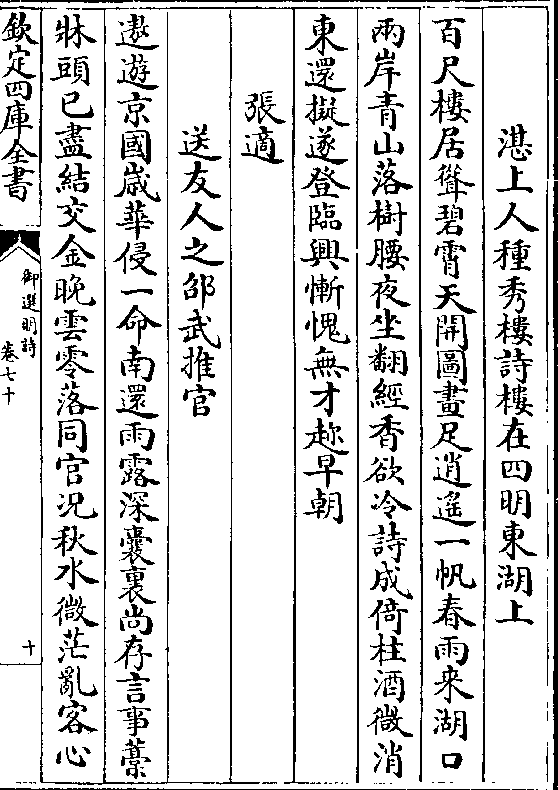 湛上人種秀樓詩樓在四明東湖上
百尺樓居聳碧霄天開圖畫足逍遙一帆春雨来湖口
兩岸青山落樹腰夜坐翻經香欲冷詩成倚柱酒微消
東還擬遂登臨興慚愧無才趂早朝
張適
送友人之邵武推官
遨遊京國嵗華侵一命南還雨露深囊裏尚存言事藁
牀頭已盡結交金晚雲零落同官况秋水微茫亂客心
欽定四庫全書
御選明詩
卷七十
十